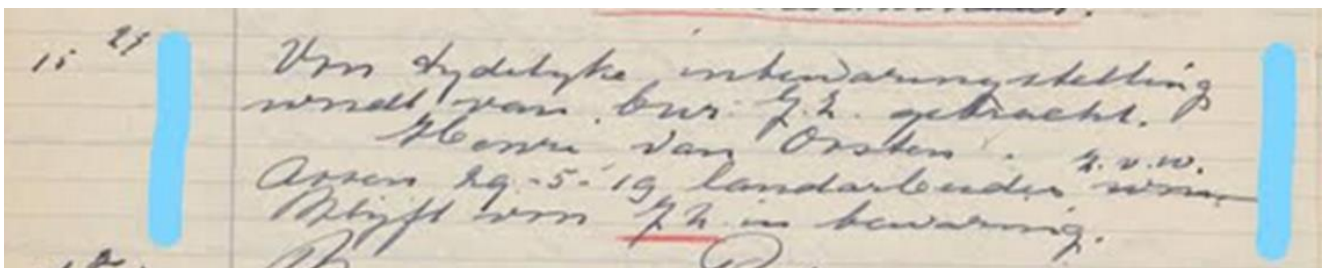 15 27
Voor tydelyke inbewaringstelling
wordt van bur. J.Z. gebracht.
Henri van Orsten. z.v.w.
Assen 29-5-19 landarbeider
Blijft voor J.Z. in bewaring.